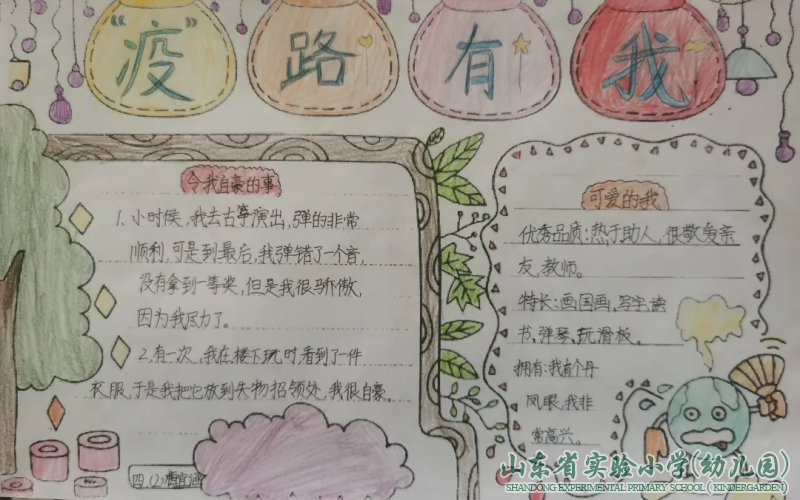 “疫”路有我
令我自豪的事
1.小时候,我去古筝演出,弹的非常
顺利,可是到最后,我弹错了一个音,
没有拿到一等奖,但是我很骄傲,
因为我尽力了。
2.有一次,我在楼下玩时,看到了一件
衣服,于是我把它放到失物招领处,我很自豪。
四.(2)
可爱的我
优秀品质:热于助人,很敬爱亲
友,教师。
特长:画国画,写字,读
书,弹琴,玩滑板。
拥有:我有个丹
凤眼,我非
常高兴。
山东省实验小学(幼儿园)
SHANDONG EXPERIMENTAL PRIMARY SCHOOL ( KINDERGARDEN)